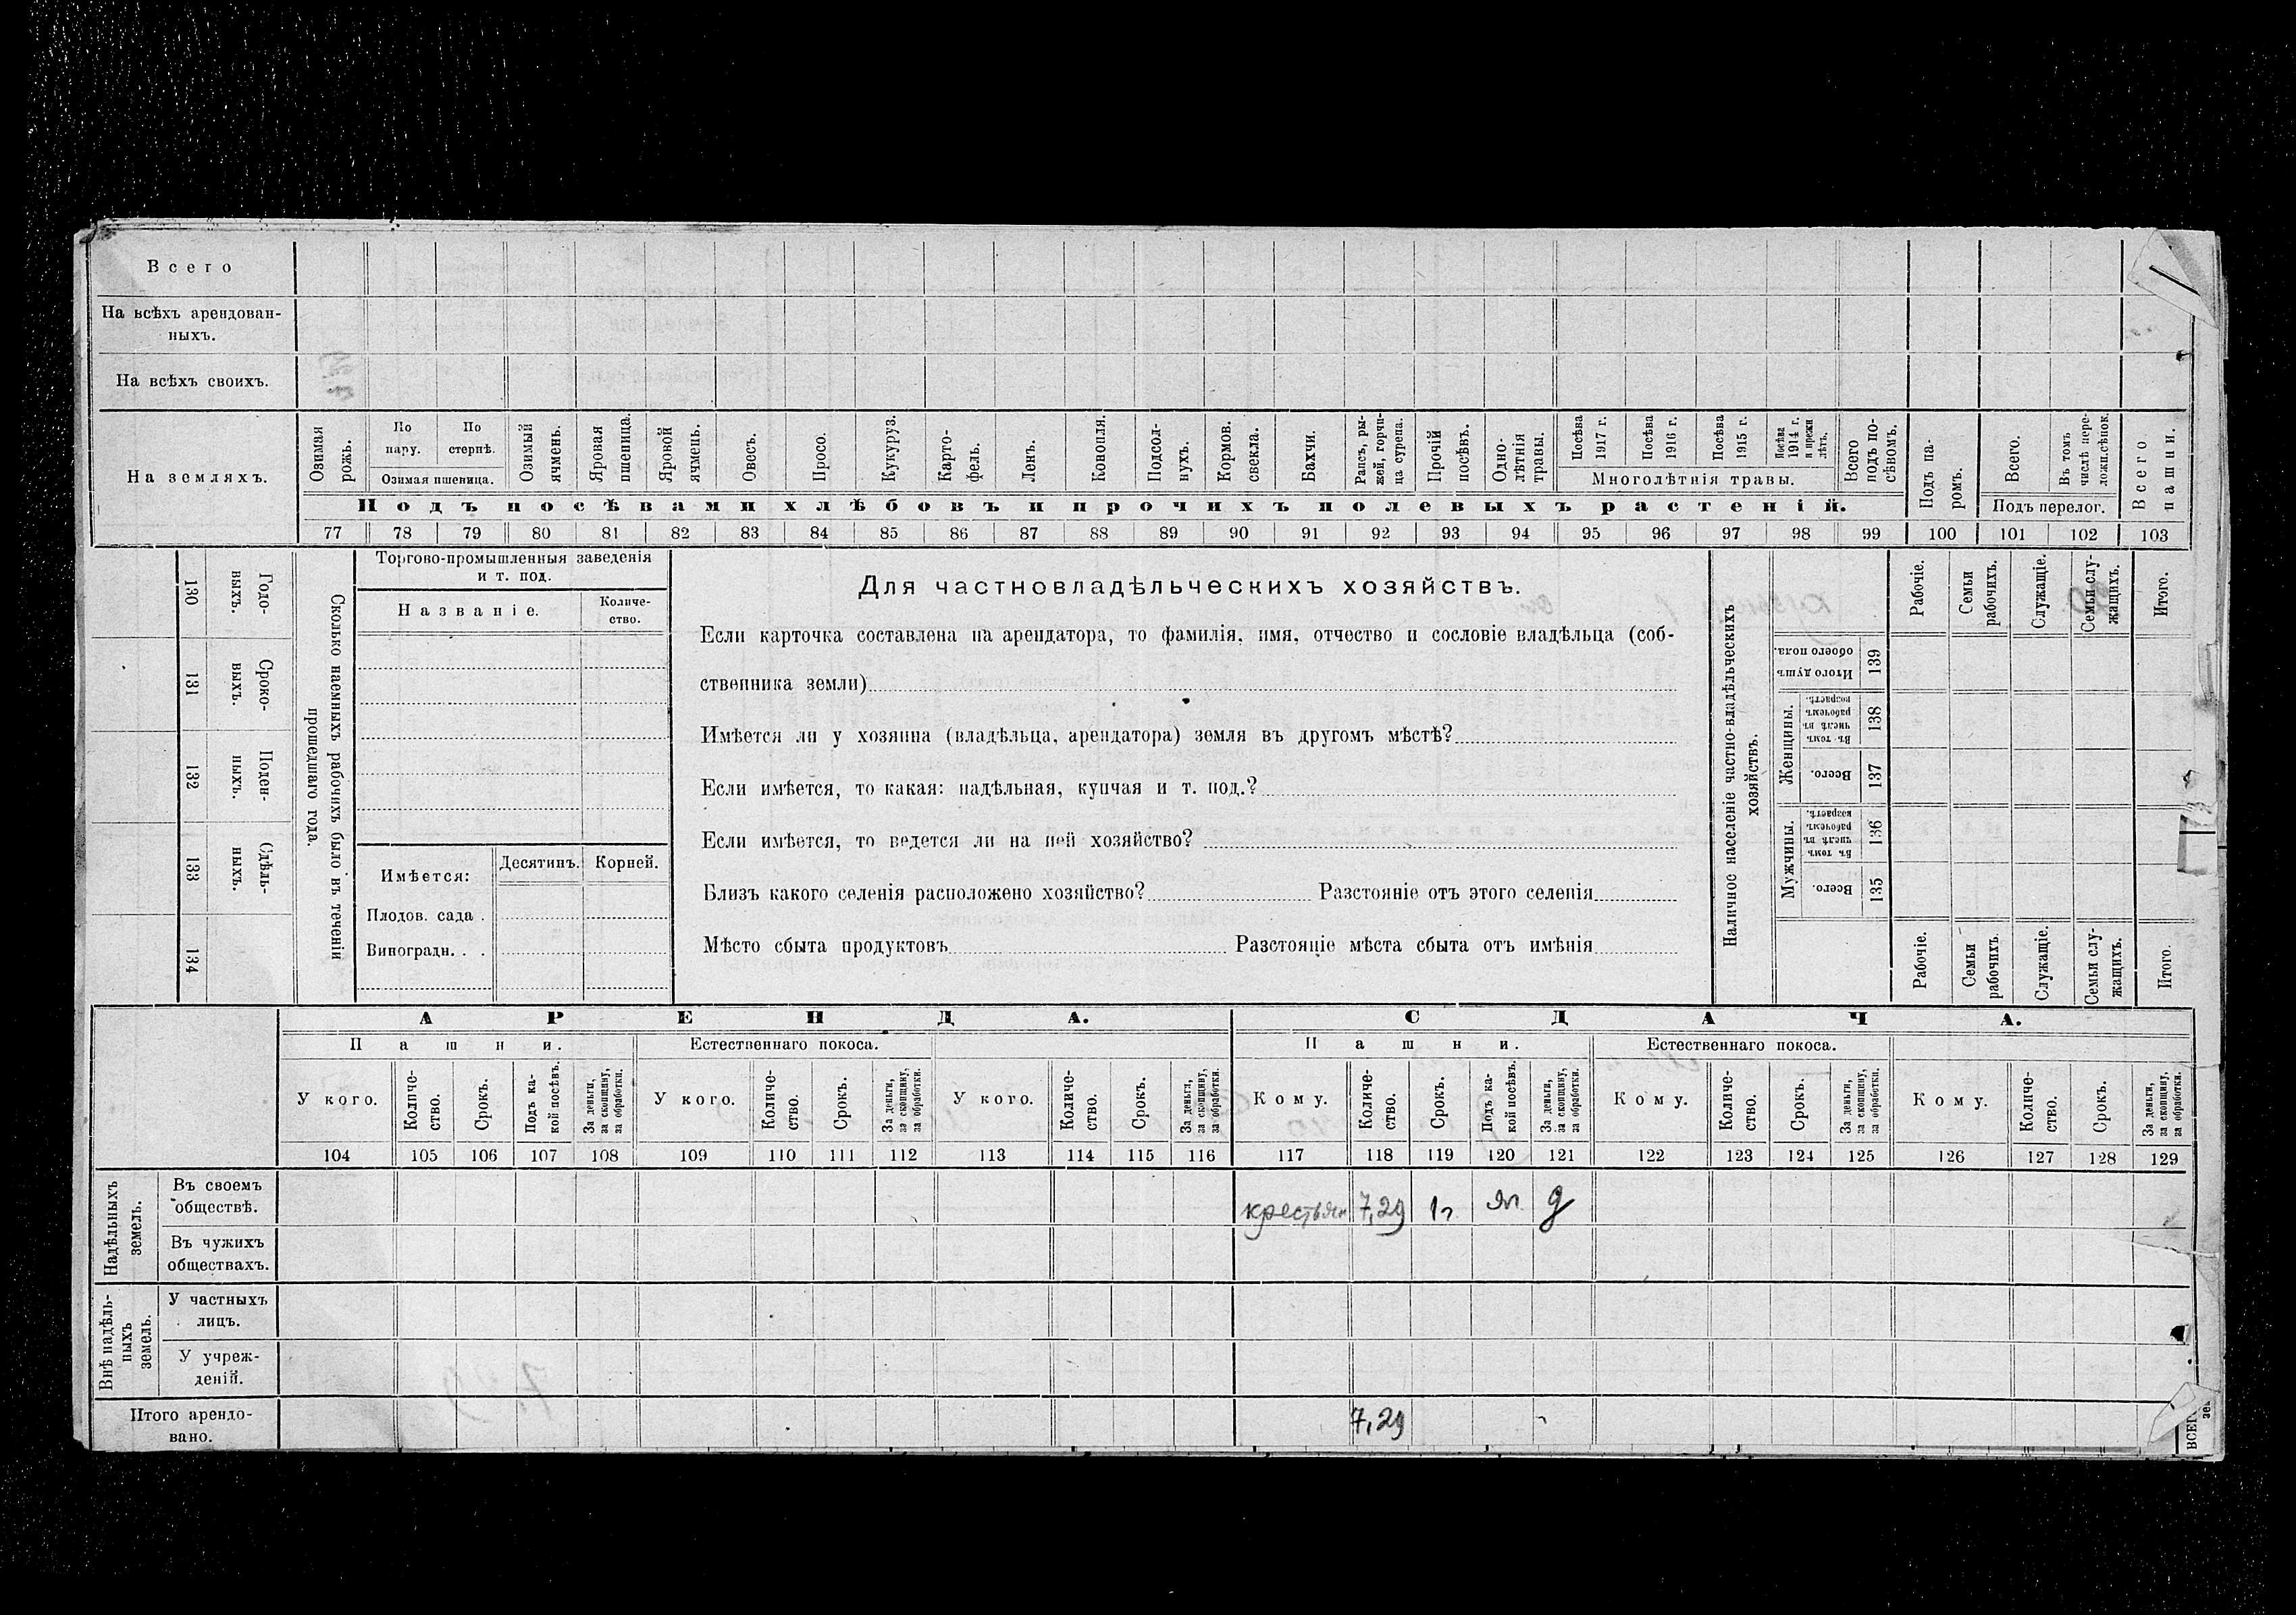 Всего
На всѣхъ арендован-
ныхъ.
На всѣхъ своихъ.
На земляхъ.
Озимая рожь.
По пару.
По стернѣ.
Озимая пшеница.
Озимый ячмень.
Яровая пшеница.
Яровой ячмень.
Овесъ.
Просо.
Кукуруз.
Карто-
фель.
Ленъ.
Конопля.
Подсол-
нухъ.
Кормов. свекла.
Бахчи.
Рапсъ, ры-
жей, горчи-
ца сурепа.
Прочій посѣвъ.
Одно-
лѣтнія травы.
Посѣва 1917 г.
Посѣва 1916 г.
Посѣва 1915 г.
Посѣва 1914 г. и прежн лѣтъ.
Многолѣтнія травы.
Всего подъ по-
сѣвомъ.
Подъ посѣвами хлѣбовъ и прочихъ полевыхъ растеній.
Подъ па-
ромъ.
Всего.
Въ томъ числѣ пере-
ложн.сѣнок.
Подъ перелог.
Всего пашни.
77 78 79 80 81 82 83 84 85 86 87 88 89 90 91 92 93 94 95 96 97 98 99 100 101 102 103
Сколько наемныхъ рабочихъ было въ теченіи
прошедшаго года.
Годо-
выхъ.
130
Сроко-
выхъ.
131
Поден-
ныхъ.
132
Сдѣль-
ныхъ.
133
134
Торгово-промышленныя заведенія
и т. под.
Названіе.
Количе-
ство.
Имѣется:
Десятинъ.
Корней.
Плодов. сада .
Виноградн. . .
Для частновладѣльческихъ хозяйствъ.
Если карточка составлена на арендатора, то фамилія, имя, отчество и сословіе владѣльца (соб-
ственника земли)
Имѣется ли у хозяина (владѣльца, арендатора) земля въ другомъ мѣстѣ?
Если имѣется, то какая: надѣльная, купчая и т. под.?
Если имѣется, то ведется ли на ней хозяйство?
Близъ какого селенія расположено хозяйство? Разстояніе отъ этого селенія
Мѣсто сбыта продуктовъ Разстояніе мѣста сбыта отъ имѣнія
Наличное населеніе частно-владѣльческихъ
хозяйствъ.
Рабочіе.
Семьи рабочихъ.
Служащіе.
Семьи слу-
жащихъ.
Итого.
Итого душъ обоего пола.
139
Женщины.
Въ томъ числѣ въ рабочемъ возрастѣ.
138
Всего.
137
Мужчины.
Въ томъ числѣ въ рабочемъ возрастѣ.
136
Всего.
135
Рабочіе.
Семьи рабочихъ.
Служащіе.
Семьи слу-
жащихъ.
Итого
АРЕНДА.
СДАЧА.
Пашни.
Естественнаго покоса.
Пашни.
Естественнаго покоса.
У кого.
Количе-
ство.
Срокъ.
Подъ ка-
кой посѣвъ.
За деньги, за скопщину, за обработки.
У кого.
Количе-
ство.
Срокъ.
За деньги, за скопщину, за обработки.
У кого.
Количе-
ство.
Срокъ.
За деньги, за скопщину, за обработки.
Кому.
Количе-
ство.
Срокъ.
Подъ ка-
кой посѣвъ.
За деньги, за скопщину, за обработки.
Кому.
Количе-
ство.
Срокъ.
За деньги, за скопщину, за обработки.
Кому.
Количе-
ство.
Срокъ.
За деньги, за скопщину, за обработки.
104 105 106 107 108 109 110 111 112 113 114 115 116 117 118 119 120 121 122 123 124 125 126 127 128 129
Надѣльныхъ
земель.
Въ своемъ
обществѣ.
крестьян 7,29 1г яч д
Въ чужихъ
обществахъ.
Внѣ надѣль-
ныхъ
земель.
У частныхъ
лицъ.
У учреж-
деній.
Итого арендо-
вано.
7,29